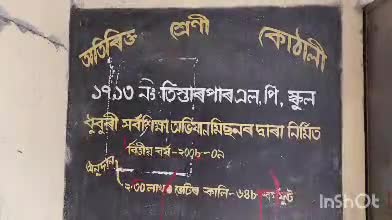 অতিৰিক্ত শ্ৰেণী কোঠালী
১৭১৩ নং তিস্তাৰপাৰ এল, পি, স্কুল
ধুবুৰী সৰ্বশিক্ষা অভিযান মিছনৰ দ্বাৰা নিৰ্মিত
বিত্তীয় বৰ্ষ - ২০০৮-০৯
অনুদান
২.৩০ লাখ কালি - ৬৪৮ ফুট
InShOt